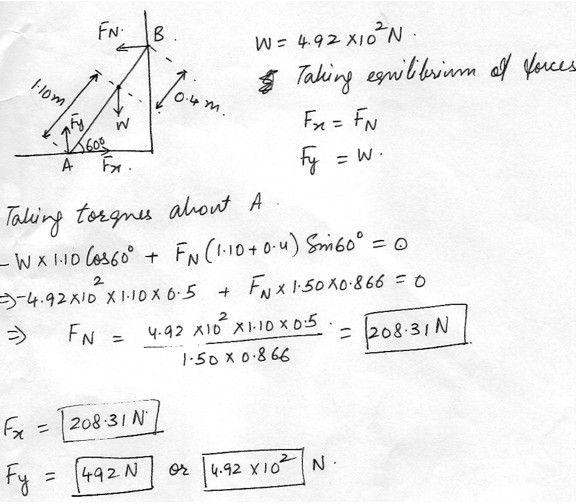 FN. B.
W = 4.92 × 10² N.
Taking equilibrium of forces
1.10m
0.4 m.
Fy W
Fx = FN
60°
A Fx.
Fy = W.
Taking torques about A
- W × 1.10 Cos60° + FN (1.10 + 0.4) Sin60° = 0
⇒ -4.92×10² × 1.10 × 0.5 + FN × 1.50 × 0.866 = 0
⇒ FN = 4.92 × 10² × 1.10 × 0.5 / 1.50 × 0.866 = 208.31 N
Fx = 208.31 N
Fy = 492 N or 4.92 × 10² N.